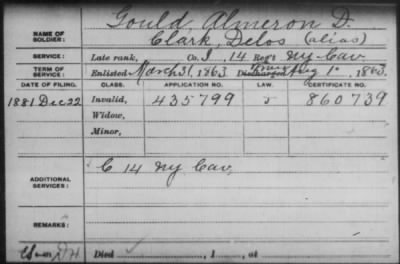 Gould, Almeron D.
NAME OF SOLDIER: Clark, Delos (alias)
SERVICE: Late rank, Co. I, 14 Reg't N.Y. Cav.
TERM OF SERVICE: Enlisted March 31, 1863 Discharged Aug 1, 1863.
DATE OF FILING. CLASS. APPLICATION NO. LAW. CERTIFICATE NO.
1881 Dec 22 Invalid, 435799 860739
Widow,
Minor,
ADDITIONAL SERVICES: C 14 N.Y. Cav.
REMARKS:
Died , 1 , at